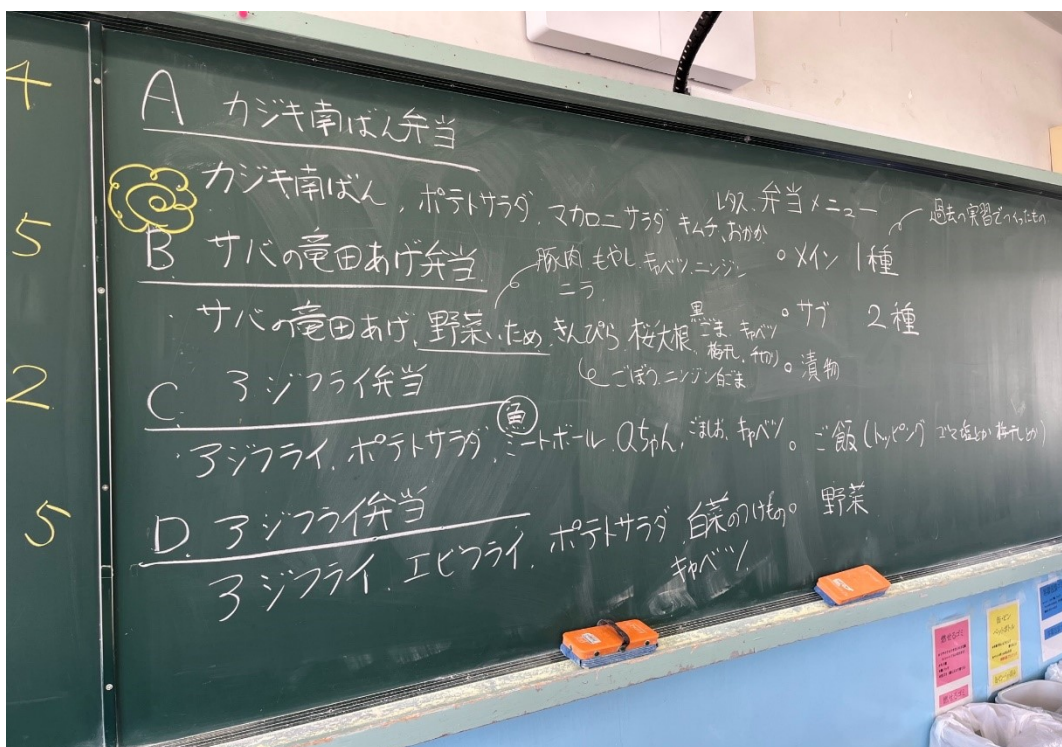 4
5
2
5
A カジキ南ばん弁当
カジキ南ばん、ポテトサラダ、マカロニサラダ キムチ、おかか レタス
B. サバの竜田あげ弁当
豚肉 もやし キャベツ ニンジン
ニラ
サバの竜田あげ、野菜いため きんぴら、桜大根 黒ごま、キャベツ
梅干し
ごぼう、ニンジン 白ごま
C. アジフライ弁当
・アジフライ、ポテトサラダ、ミートボール Qちゃん、ごましお、キャベツ
D. アジフライ弁当
アジフライ、エビフライ、ポテトサラダ、白菜のつけもの
キャベツ
弁当メニュー
過去の実習でつくったもの
○メイン 1種
○サブ 2種
○漬物
○ご飯(トッピング ゴマ塩とか梅干しとか)
○野菜
燃せるゴミ